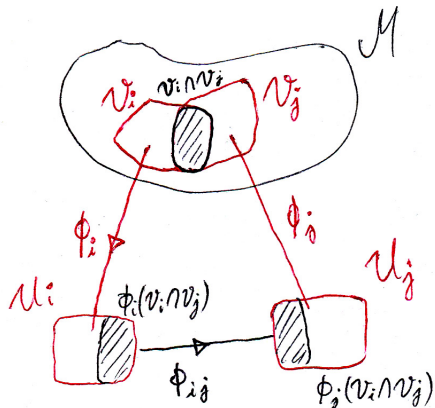 M
v_i v_i∩v_j v_j
ϕ_i ϕ_j
U_i ϕ_i(v_i∩v_j) U_j
ϕ_ij ϕ_j(v_i∩v_j)